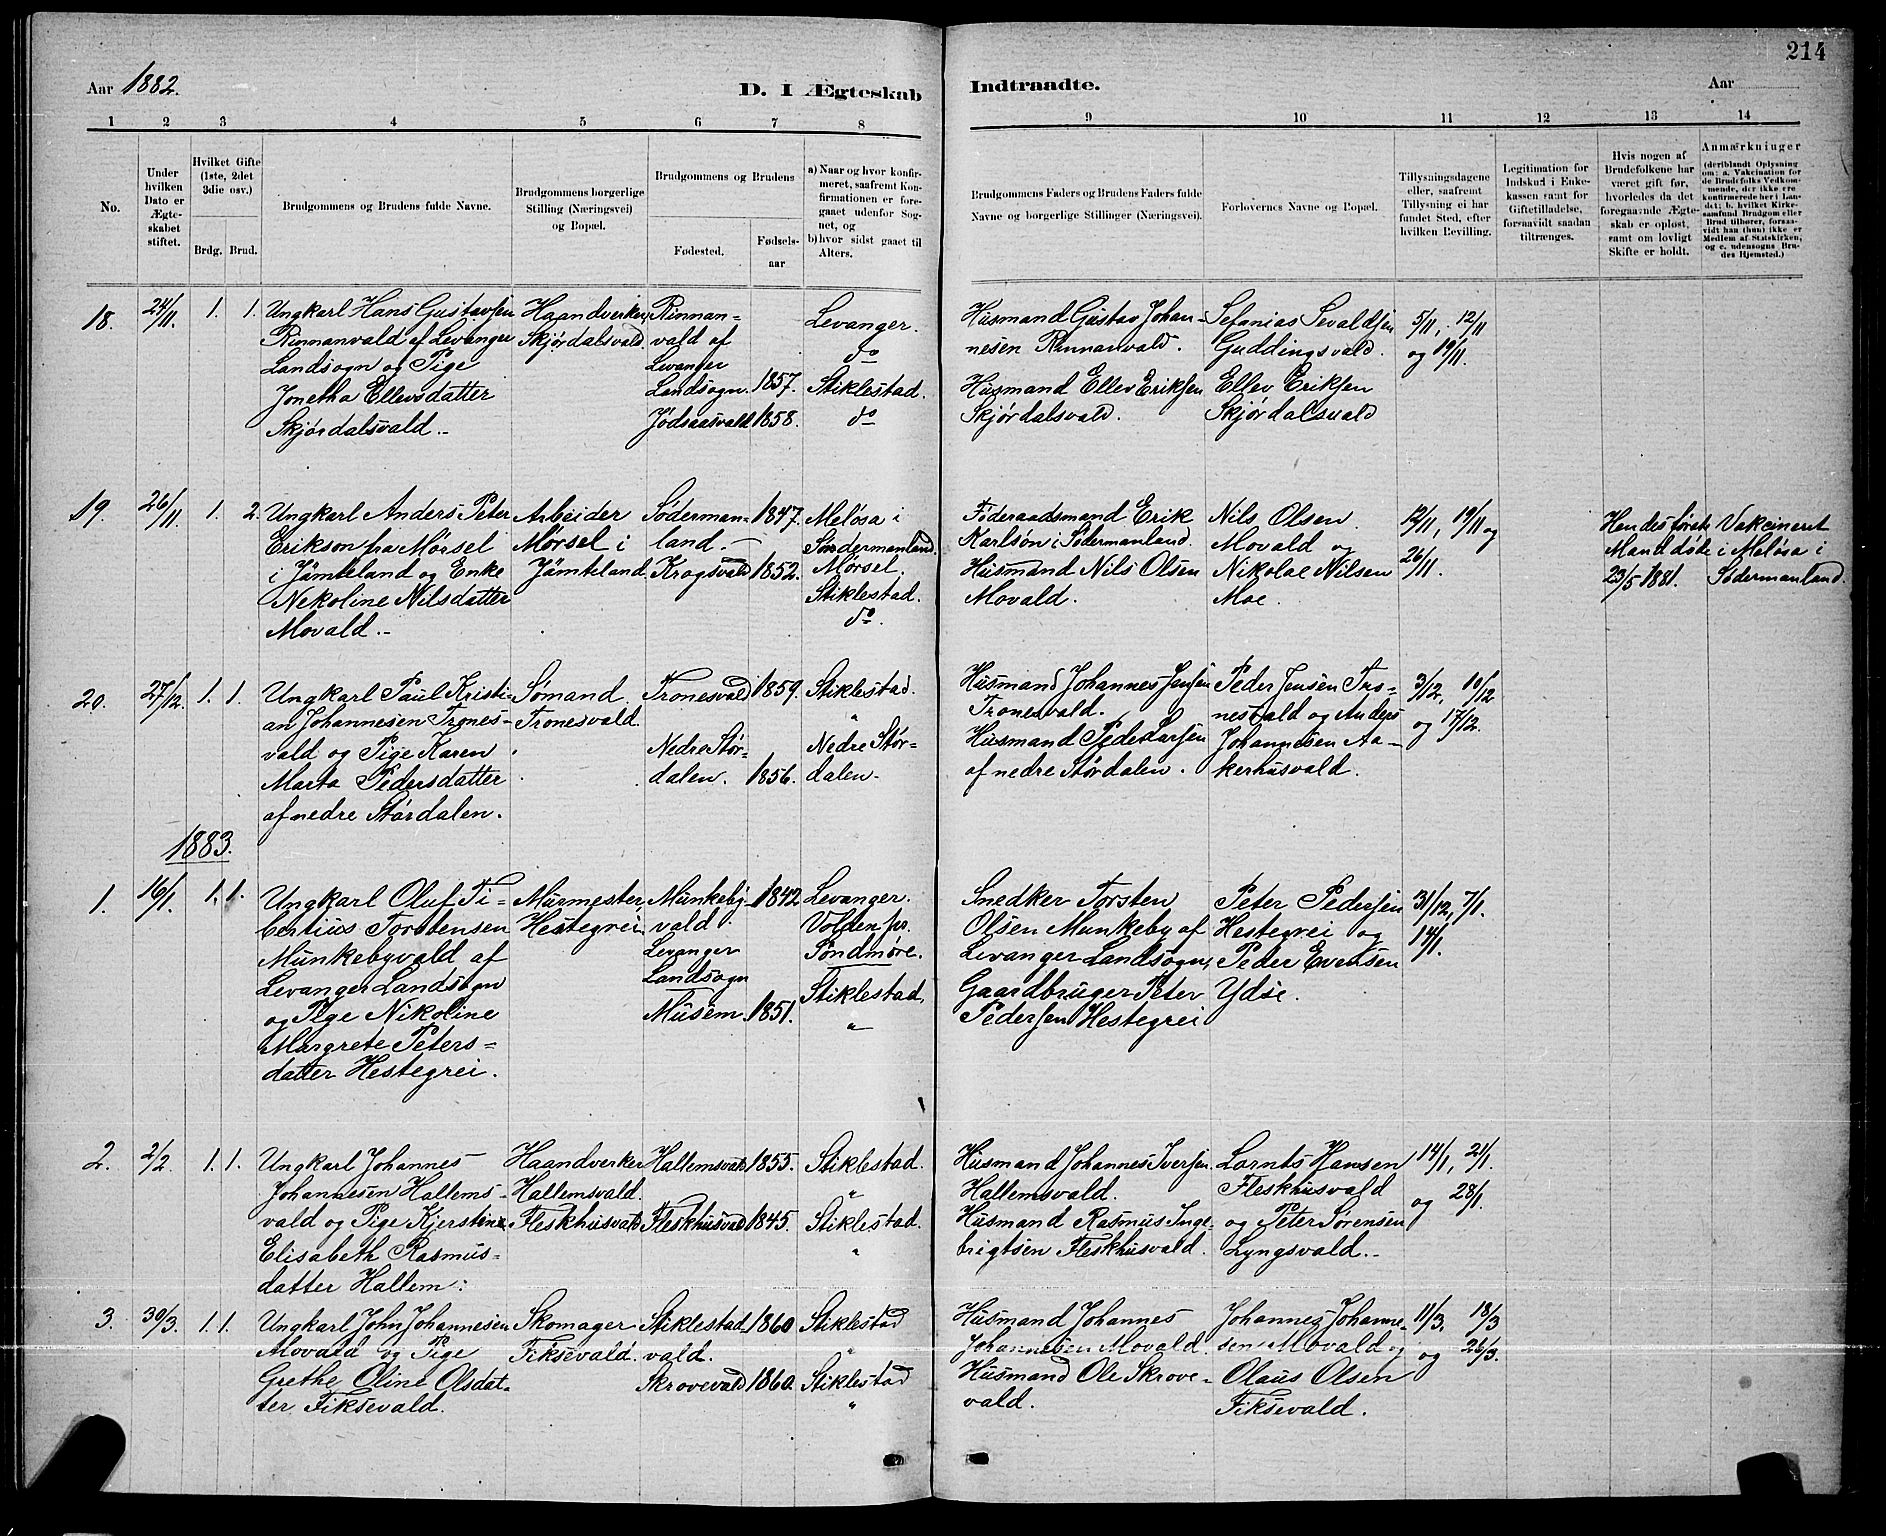 214
Aar 1882.
D. I Ægteskab
Indtraadte.
Aar
1 2 3 4 5 6 7 8 9 10 11 12 13 14
No.
Under
hvilken
Dato er
Ægte-
skabet
stiftet.
Hvilket Gifte
(1ste, 2det
3die osv.)
Brdg. Brud.
Brudgommens og Brudens fulde Navne.
Brudgommens borgerlige
Stilling (Næringsvei)
og Bopæl.
Brudgommens og Brudens
Fødested.
Fødsels-
aar
a) Naar og hvor konfir-
meret, saafremt Kon-
firmationen er fore-
gaaet udenfor Sog-
net, og
b) hvor sidst gaaet til
Alters.
Brudgommens Faders og Brudens Faders fulde
Navne og borgerlige Stillinger (Næringsvei).
Forlovernes Navne og Bopæl.
Tillysningsdagene
eller, saafremt
Tillysning ei har
fundet Sted, efter
hvilken Bevilling.
Legitimation for
Indskud i Enke-
kassen samt for
Giftetilladelse,
forsaavidt saadan
tiltrænges.
Hvis nogen af
Brudefolkene har
været gift før,
hvorledes da det
foregaaende Ægte-
skab er opløst,
samt om lovligt
Skifte er holdt.
Anmærkninger
(deriblandt Oplysning
om: a. Vakcination for
de Brudefolks Vedkom-
mende, der ikke ere
konfirmerede her i Lan-
det; b. hvilket Kirke-
samfund Brudgom eller
Brud tilhører, forsaa-
vidt han (hun) ikke er
Medlem af Statskirken,
og c. udensogns Bru-
des Hjemsted.)
18. 24/11. 1. 1.
Ungkarl Hans Gustavsen
Rinnanvald af Levanger
Landsogn og Pige
Jonetha Ellevsdatter
Skjørdalsvald.
Haandverker
Skjørdalsvald
Rinnan-
vald af
Levanger
Landsogn. 1857.
Jødsaasvald 1858.
Levanger.
do
Stiklestad.
do
Husmand Gustav Johan-
nesen Rinnanvald.
Husmand Ellev Eriksen
Skjørdalsvald.
Sefanias Sevaldsen
Guddingsvald.
Ellev Eriksen
Skjørdalsvald
5/11, 12/11
og 19/11.
19. 26/11. 1. 2.
Ungkarl Anders Peter
Erikson fra Mørsel
i Jämteland og Enke
Nekoline Nilsdatter
Movald.
Arbeider
Mørsel i
Jämteland
Søderman- 1847.
land.
Krogsvald 1852.
Melösa i
Søndermanland.
Mørsel.
Stiklestad.
do.
Föderaadsmand Erik
Karlsøn i Södermanland.
Husmand Nils Olsen
Movald.
Nils Olsen
Movald og
Nikolae Nilsen
Moe.
12/11, 19/11 og
26/11.
Hendes første
Mand døde
23/5 1881.
Vakcineret
i Melösa i
Södermanland.
20. 27/12. 1. 1.
Ungkarl Paul Kristi-
an Johannesen Trones-
vald og Pige Karen
Marta Pedersdatter
af nedre Størdalen.
Sømand
Tronesvald.
Tronesvald 1859.
Nedre Stør-
dalen. 1856.
Stiklestad.
"
Nedre Stør-
dalen.
Husmand Johannes Jensen
Tronesvald.
Husmand Peder Larsen
af nedre Størdalen.
Peder Jensen Tro-
nesvald og Anders
Johannesen Aa-
kerhusvald.
3/12, 10/12
og 17/12.
1883.
1. 16/1. 1. 1.
Ungkarl Oluf Ti-
bertius Torstensen
Munkebyvald af
Levanger Landsogn
og Pige Nikoline
Margrete Peters-
datter Hestegrei.
Murmester
Hestegrei
Munkeby- 1842
vald.
Levanger
Landsogn
Musem. 1851.
Levanger.
Volden pr.
Søndmøre.
Stiklestad.
"
Snedker Torsten
Olsen Munkeby af
Levanger Landsogn,
Gaardbruger Peter
Pedersen Hestegrei
Peter Pedersen
Hestegrei og
Peder Evensen
Ydse.
31/12, 7/1.
14/1.
2. 2/2. 1. 1.
Ungkarl Johannes
Johannesen Hallems-
vald og Pige Kjerstine
Elisabeth Rasmus-
datter Hallem:
Haandverker
Hallemsvald.
Fleskhusvald
Hallemsvald 1855.
Fleskhusvald 1845.
Stiklestad.
"
Stiklestad.
"
Husmand Johannes Iversen
Hallemsvald.
Husmand Rasmus Inge-
brigtsen Fleskhusvald.
Lornts Hansen
Fleskhusvald
og Peter Sørensen
Lyngsvald.
14/1, 21/1.
og 28/1.
3. 30/3. 1. 1.
Ungkarl John Johannesen
Movald og Pige
Grethe Oline Olsdat-
ter Fiksevald.
Skomager
Fiksevald.
Stiklestad 1860
vald.
Skrovevald 1860.
Stiklestad
"
Stiklestad
"
Husmand Johannes
Johannesen Movald.
Husmand Ole Skrove-
vald.
Johannes Johanne-
sen Movald og
Olaus Olsen
Fiksevald.
11/3. 18/3
og 26/3.